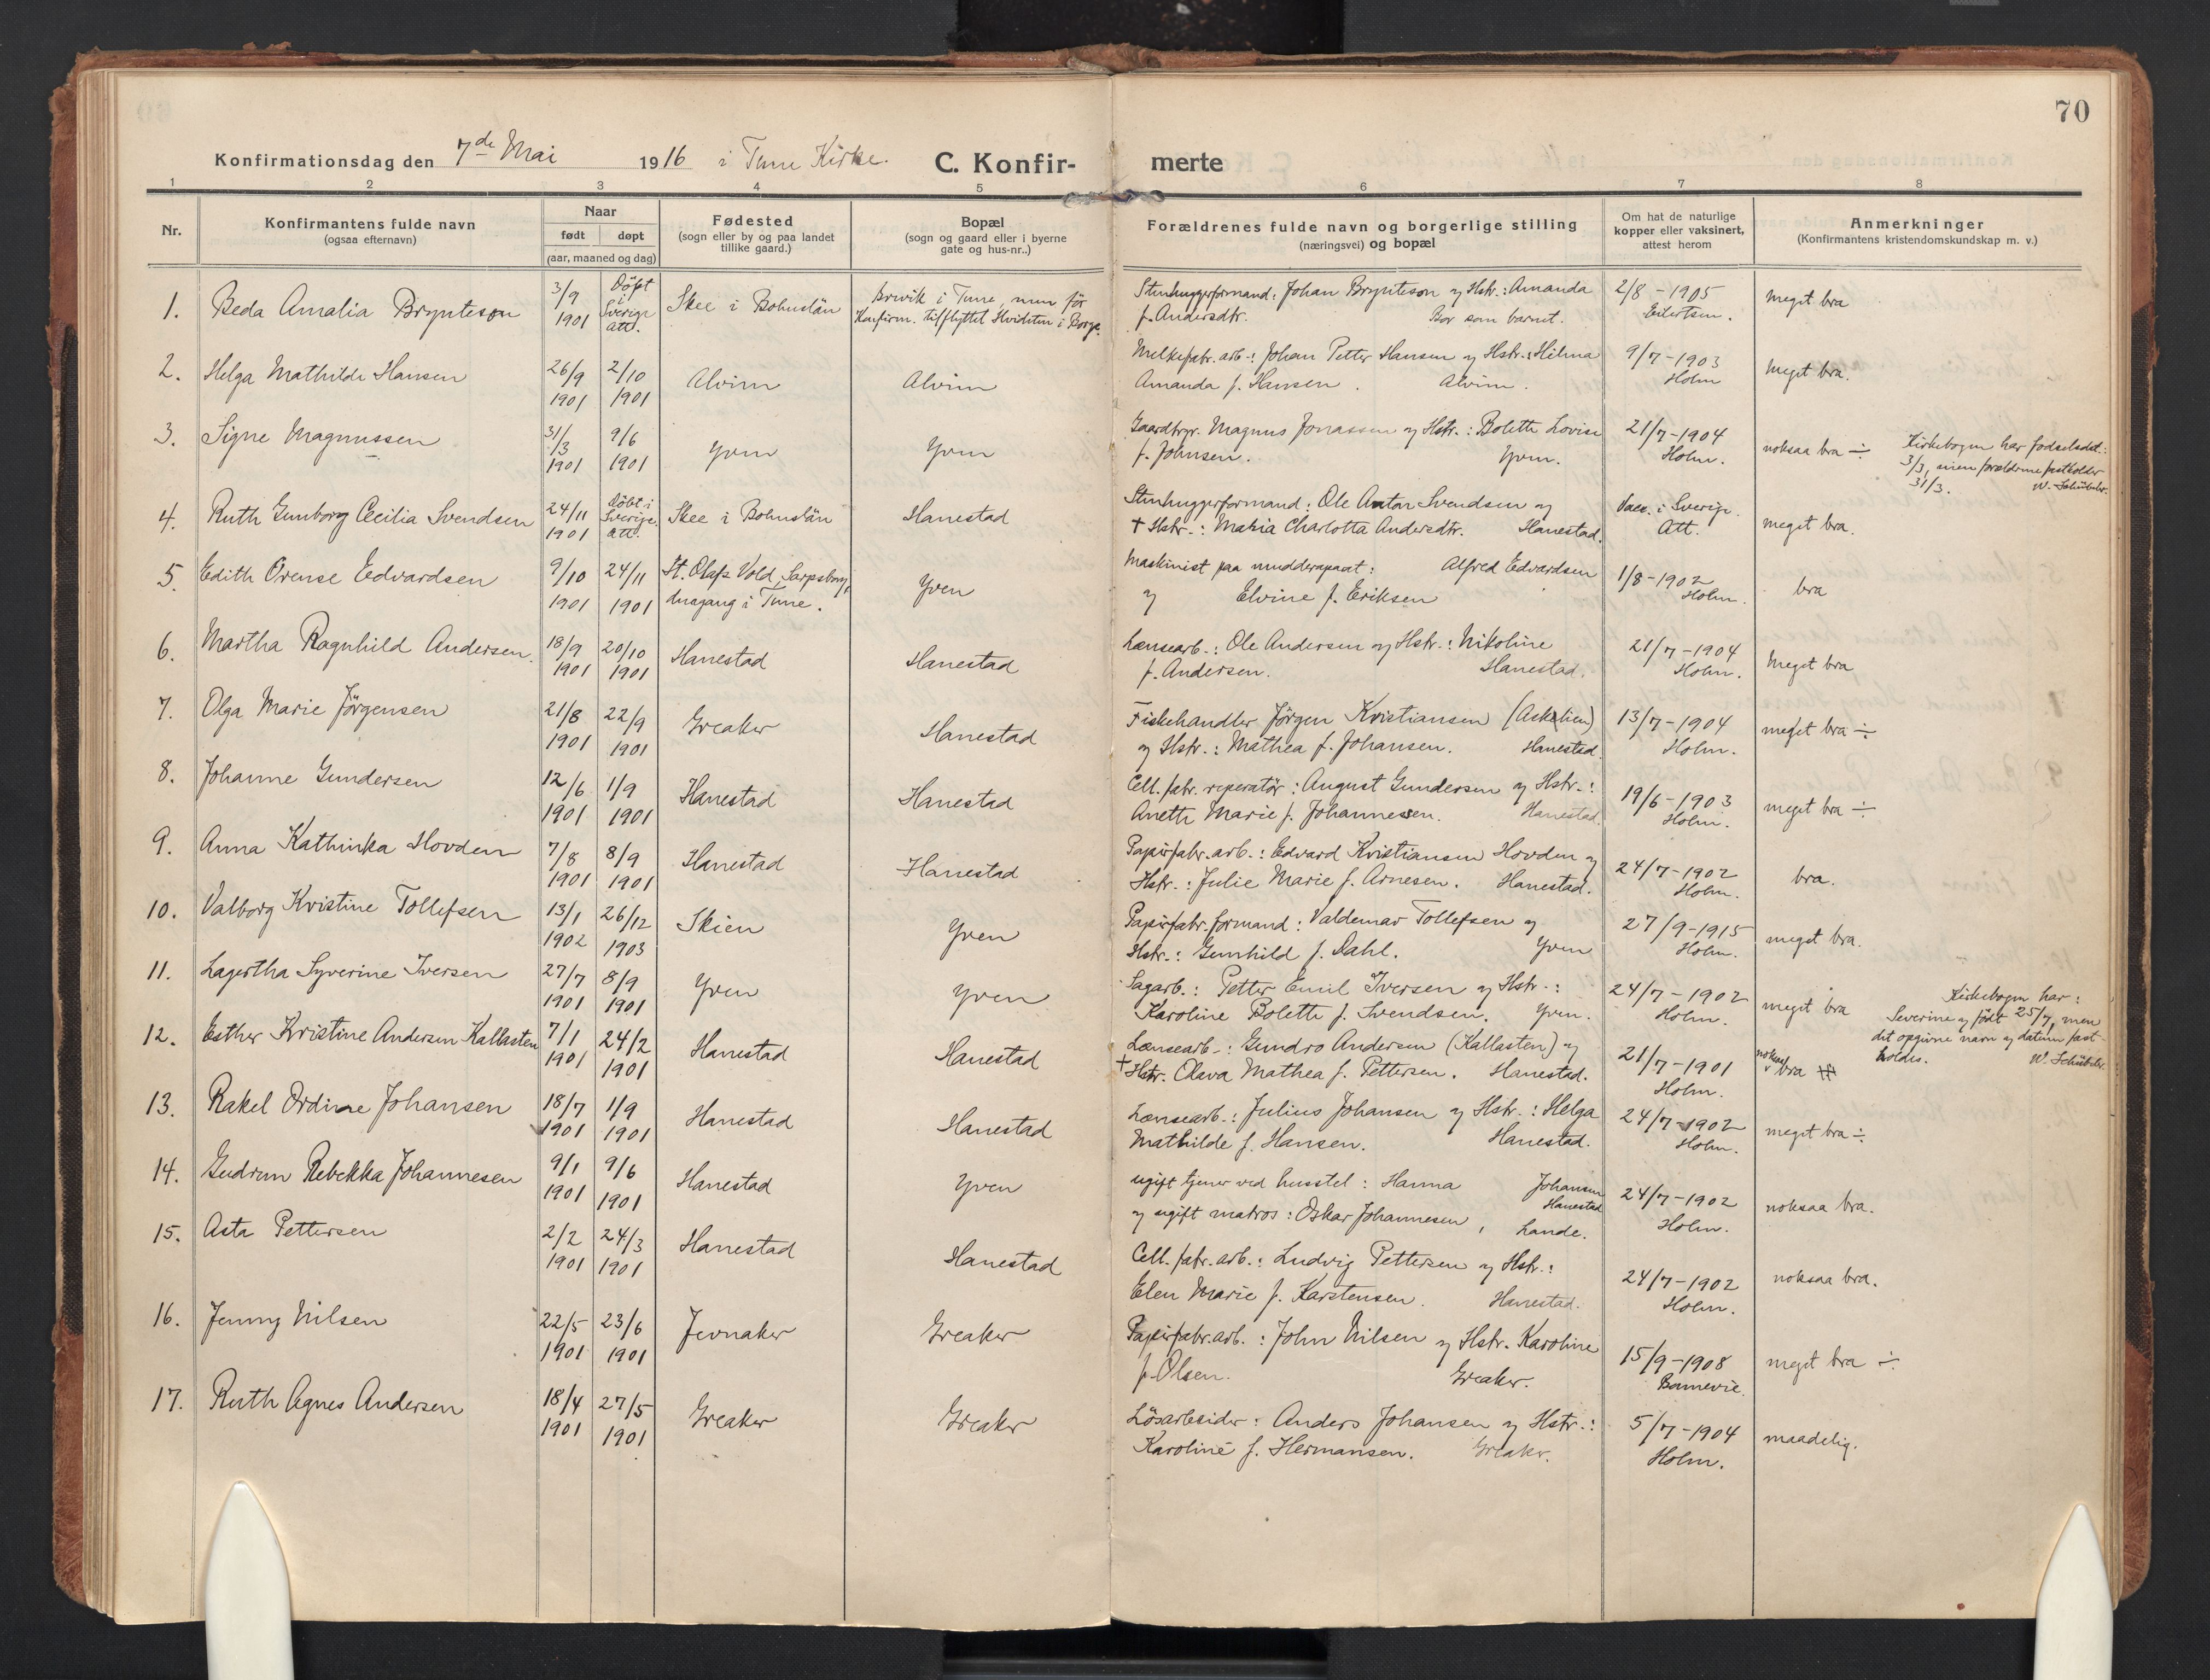 70
Konfirmationsdag den 7de Mai 1916 i Tune Kirke. C. Konfir- merte
1 2 3 4 5 6 7 8
Nr.
Konfirmantens fulde navn
(ogsaa efternavn)
Naar
født døpt
(aar, maaned og dag)
Fødested
(sogn eller by og paa landet
tillike gaard.)
Bopæl
(sogn og gaard eller i byerne
gate og hus-nr..)
Forældrenes fulde navn og borgerlige stilling
(næringsvei) og bopæl
Om hat de naturlige
kopper eller vaksinert,
attest herom
Anmerkninger
(Konfirmantens kristendomskundskap m. v.)
1. Beda Amalia Brynteson
3/9 1901
Döpt i Sverige att.
Skee i Bohuslän
i Tune, men før
Konfirm. tilflyttet Hvidsten i Borge.
Stenhuggerformand: Johan Brynteson og Hstr.: Amanda
f. Andersdtr. Bor som barnet.
2/8 - 1905
Eilertsen.
Meget bra
2. Helga Mathilde Hansen
26/9 1901
2/10 1901
Alvim
Alvim
Melkefabr. arb.: Johan Petter Hansen og Hstr.: Hilma
Amanda f. Hansen. Alvim.
9/7 - 1903
Holm
Meget bra.
3. Signe Magnussen
31/3 1901
9/6 1901
Yven
Yven
Gaardbgr. Magnus Jonassen og Hstr.: Bolette Lovise
f. Johnsen. Yven.
21/7 - 1904
Holm.
noksaa bra ÷
Kirkebogen har fødselsdat.:
3/3, men forældrene fastholder
31/3. W. Schübeler.
4. Ruth Gunborg Cecilia Svendsen
24/11 1901
Döbt i Sverige. att.
Skee i Bohuslän
Hanestad
Stenhuggerformand: Ole Anton Svendsen og
† Hstr.: Maria Charlotta Andersdtr. Hanestad.
Vacc. i Sverige.
Att.
meget bra.
5. Edith Orense Edvardsen
9/10 1901
24/11 1901
St. Olafs Vold, Sarpsborg,
dengang i Tune.
Yven
Maskinist paa mudderapaat: Alfred Edvardsen
og Elvine f. Eriksen
1/8 - 1902
Holm.
bra
6. Martha Ragnhild Andersen.
18/9 1901
20/10 1901
Hanestad
Hanestad
Lænsearb.: Ole Andersen og Hstr.: Nikoline
f. Andersen. Hanestad.
21/7 - 1904
Holm.
Meget bra
7. Olga Marie Jörgensen
21/8 1901
22/9 1901
Greaker
Hanestad
Fiskehandler Jörgen Kristiansen (Askelien)
og Hstr.: Mathea f. Johansen. Hanestad.
13/7 - 1904
Holm.
meget bra ÷
8. Johanne Gundersen
12/6 1901
1/9 1901
Hanestad
Hanestad
Cell. fabr. reperatör: August Gundersen og Hstr.:
Anette Marie f. Johannesen. Hanestad.
19/6 - 1903
Holm.
meget bra ÷
9. Anna Kathinka Hovden
7/8 1901
8/9 1901
Hanestad
Hanestad
Papirfabr. arb.: Edvard Kristiansen Hovden og
Hstr.: Julie Marie f. Arnesen. Hanestad.
24/7 - 1902
Holm.
bra.
10. Valborg Kristine Tollefsen
13/1 1902
26/12 1903
Skien
Yven
Papirfabr. formand: Valdemar Tollefsen og
Hstr.: Gunhild f. Dahl. Yven
27/9 - 1915
Holm.
meget bra.
11. Lagertha Syverine Iversen
27/7 1901
8/9 1901
Yven
Yven
Sagarb.: Petter Emil Iversen og Hstr.:
Karoline Bolette f. Svendsen. Yven.
24/7 - 1902
Holm.
meget bra
Kirkebogen har:
Severine og født 25/7, men
det opgivne navn og datum fast-
holdes. W. Schübeler.
12. Esther Kristine Andersen Kallasten
7/1 1901
24/2 1901
Hanestad
Hanestad
Lænsearb.: Gundro Andersen (Kallasten) og
† Hstr. Olava Mathea f. Pettersen. Hanestad.
21/7 - 1901
Holm.
noksaa bra
13. Rakel Ordine Johansen
18/7 1901
1/9 1901
Hanestad
Hanestad
Lænsearb.: Julius Johansen og Hstr.: Helga
Mathilde f. Hansen. Hanestad.
24/7 - 1902
Holm.
meget bra ÷
14. Gudrun Rebekka Johannesen
9/1 1901
9/6 1901
Hanestad
Yven
ugift tjener ved husstel: Hanna Johansen Hanestad
og ugift matros: Oskar Johannesen, Lande.
24/7 - 1902
Holm.
noksaa bra.
15. Asta Pettersen
2/2 1901
24/3 1901
Hanestad
Hanestad
Cell. fabr. arb.: Ludvig Pettersen og Hstr.:
Elen Marie f. Karstensen. Hanestad.
24/7 - 1902
Holm.
noksaa bra.
16. Jenny Nilsen
22/5 1901
23/6 1901
Jevnaker
Greaker
Papirfabr. arb.: John Nilsen og Hstr. Karoline
f. Olsen. Greaker.
15/9 - 1908
meget bra ÷
17. Ruth Agnes Andersen
18/4 1901
27/5 1901
Greaker
Greaker
Lösarbeider: Anders Johansen og Hstr.:
Karoline f. Hermansen. Greaker.
5/7 - 1904
Holm.
maadelig.